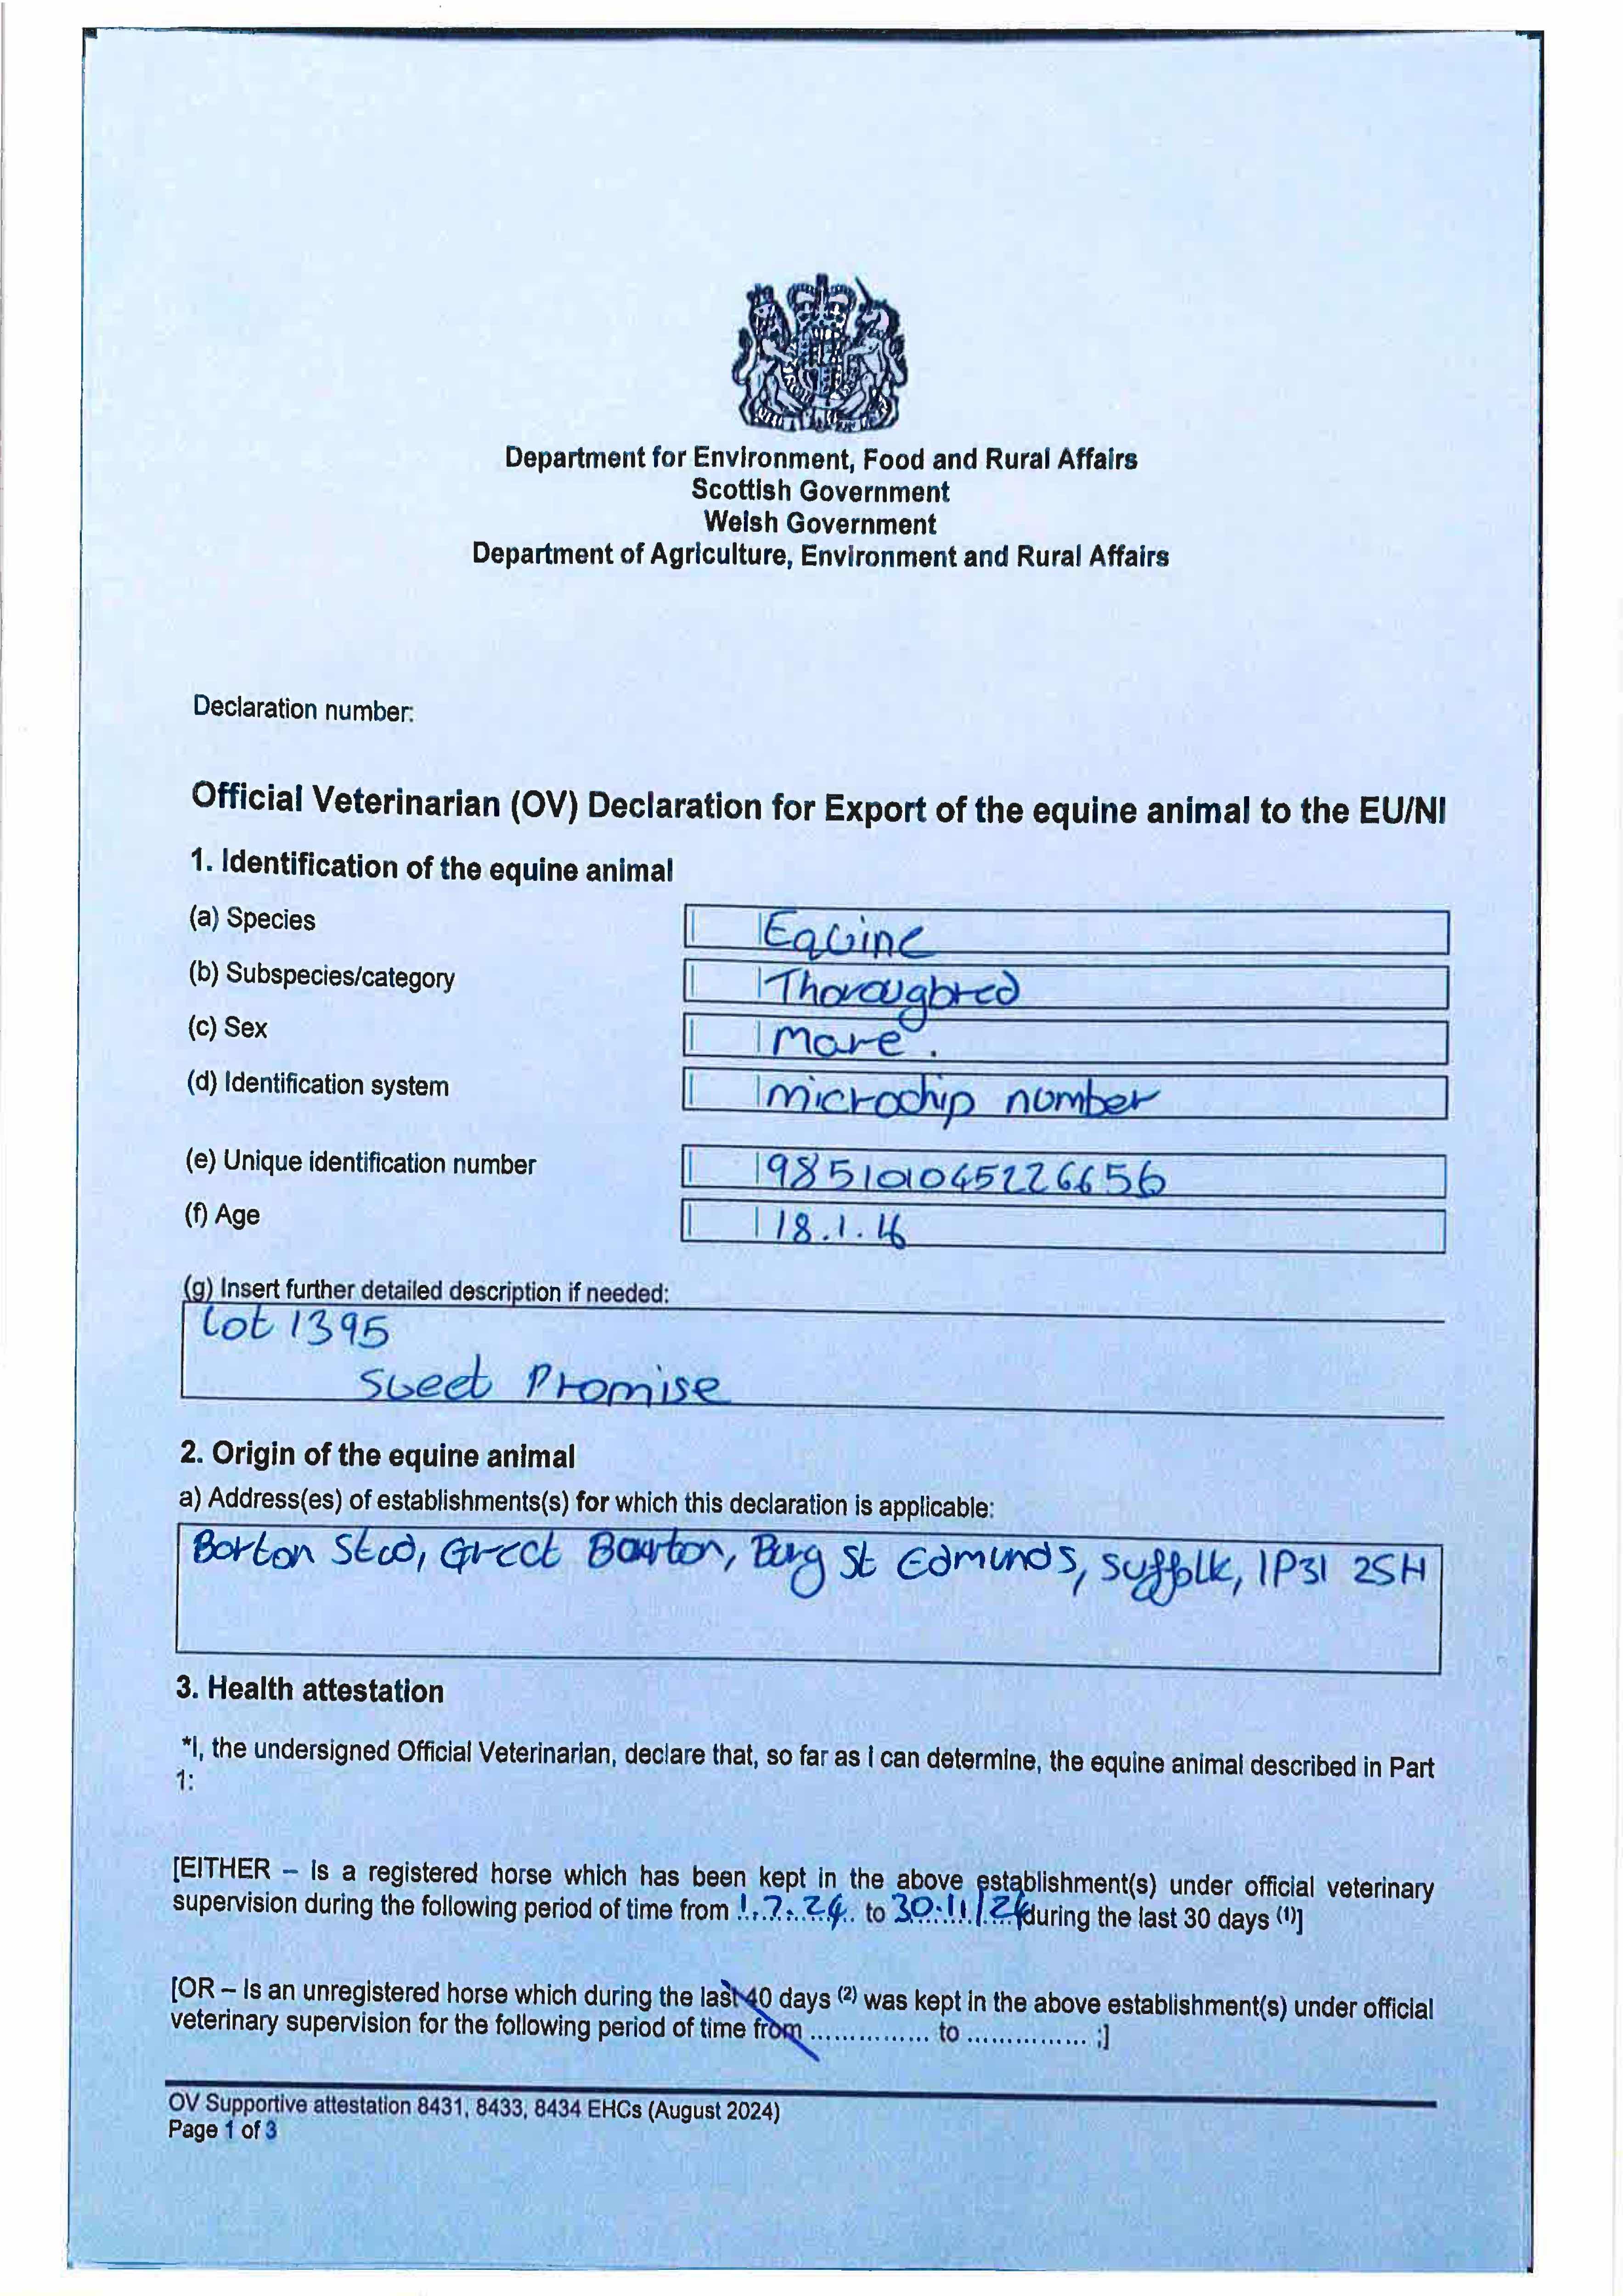 Department for Environment, Food and Rural Affairs
Scottish Government
Welsh Government
Department of Agriculture, Environment and Rural Affairs
Declaration number:
Official Veterinarian (OV) Declaration for Export of the equine animal to the EU/NI
1. Identification of the equine animal
(a) Species Equine
(b) Subspecies/category Thoroughbred
(c) Sex Mare.
(d) Identification system microchip number
(e) Unique identification number 985101045226656
(f) Age 18.1.16
(g) Insert further detailed description if needed:
Lot 1395
Sweet Promise
2. Origin of the equine animal
a) Address(es) of establishments(s) for which this declaration is applicable:
Barton Stud, Great Barton, Bury St Edmunds, Suffolk, IP31 2SH
3. Health attestation
*I, the undersigned Official Veterinarian, declare that, so far as I can determine, the equine animal described in Part
1:
[EITHER – is a registered horse which has been kept in the above establishment(s) under official veterinary
supervision during the following period of time from 1.7.24 to 30.11/24 during the last 30 days (1)]
[OR – Is an unregistered horse which during the last 40 days (2) was kept in the above establishment(s) under official
veterinary supervision for the following period of time from ............... to ............... ;]
OV Supportive attestation 8431, 8433, 8434 EHCs (August 2024)
Page 1 of 3